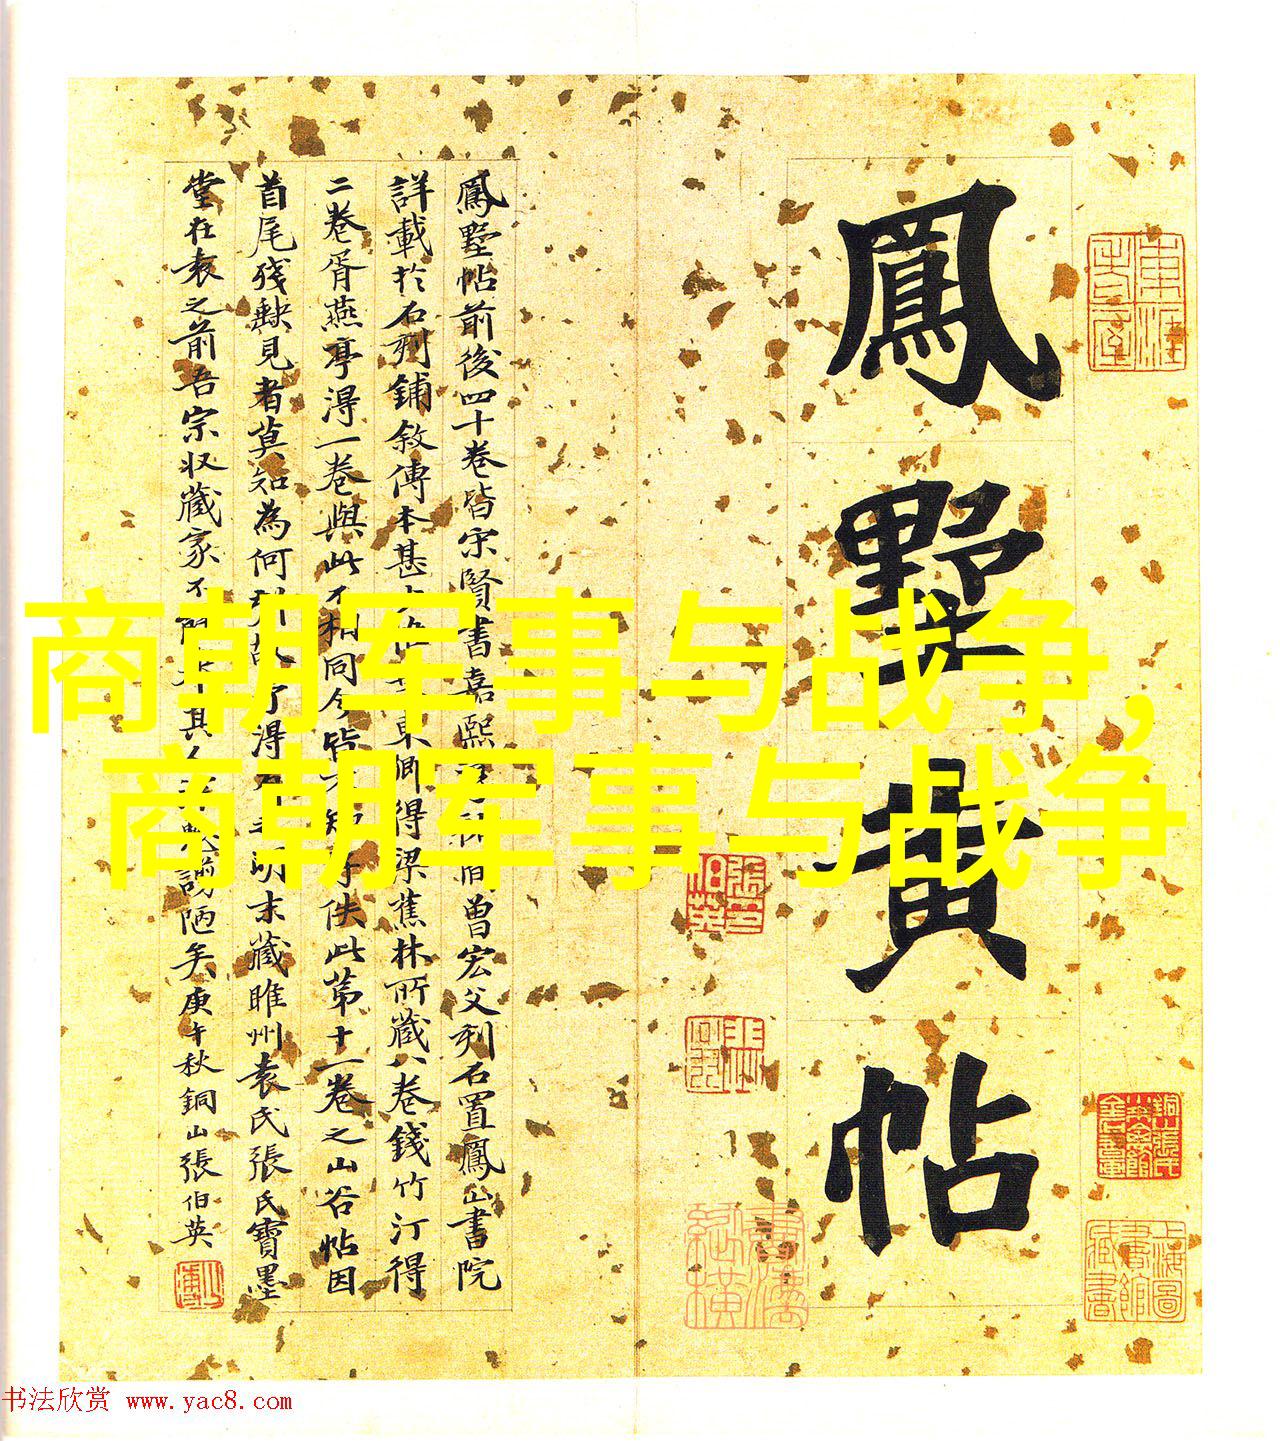 鳳墅黄帖
鳳墅帖前後四十卷皆宋賢書嘉熙曾宏父刻石置鳳山書院
詳載於石刻鋪敘傳本甚東卿得梁蕉林所藏八卷錢竹汀得
二卷胥燕亭得一卷與此不相同今皆佚此第十一卷之山谷帖因
首尾殘缺見者莫知為何刻故得明末藏睢州袁氏張氏寶墨
堂在袁之前吾宗收藏家不其陋矣庚午秋銅山張伯英
張伯英
上海圖書館藏書
商朝军事与战争,
商朝军事与战争
书法欣赏 www.yac8.com